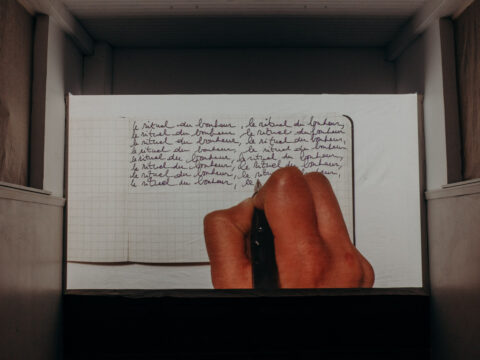 le rituel du bonheur, le rituel du bonheur,
le rituel du bonheur, le rituel du bonheur
le rituel du bonheur, le rituel du bonheur,
le rituel du bonheur, le rituel du bonheur,
le rituel du bonheur, le rituel du bonheur,
le rituel du bonheur, le rituel du bonheur,
le rituel du bonheur, le
le rituel du bonheur, le